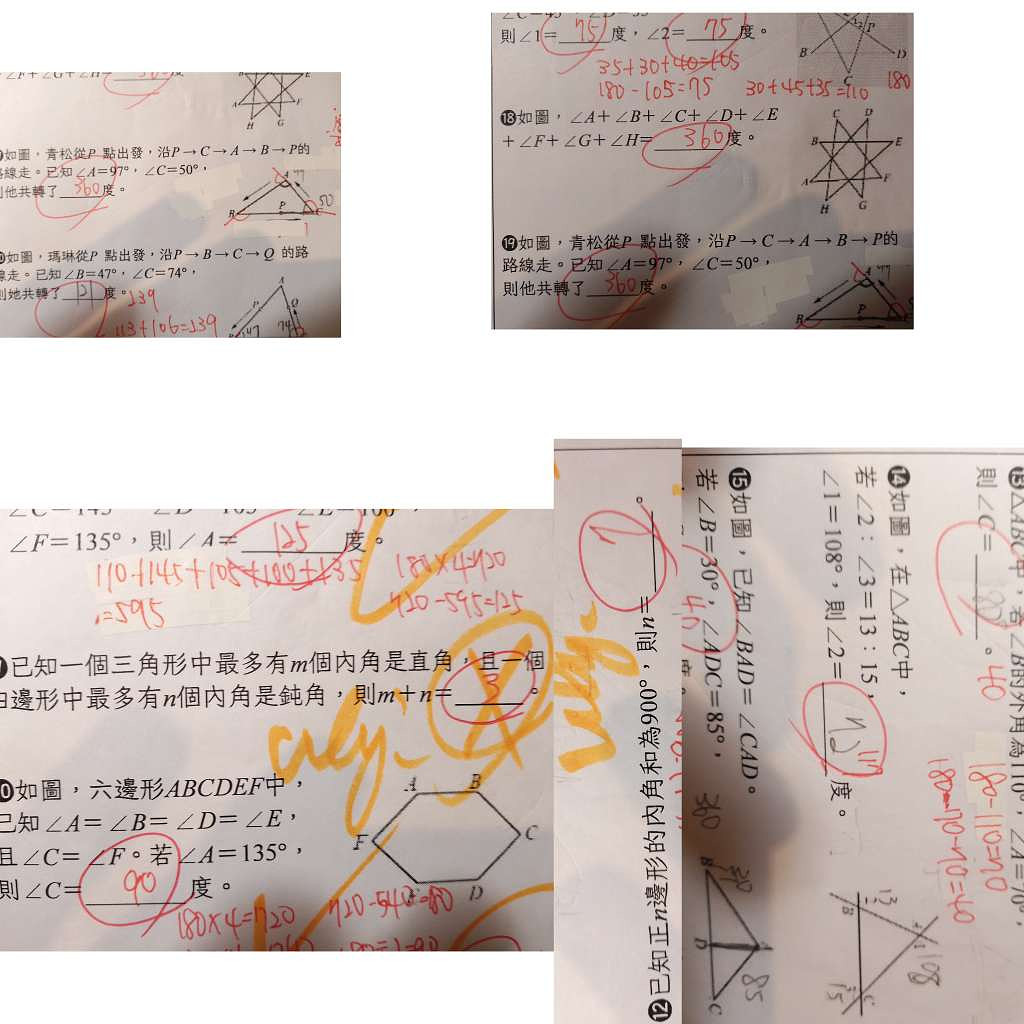 ∠F+∠G+∠H=360度
如圖，青松從P 點出發，沿P→C→A→B→P的
路線走。已知∠A=97°，∠C=50°，
則他共轉了360度。
A 97
50
B P
如圖，瑪琳從P 點出發，沿P→B→C→Q 的路
線走。已知∠B=47°，∠C=74°，
則她共轉了 度。239
113+106=239
A
P Q
47 74
則∠1=75度，∠2=75度。
35+30+40=105
180-105=75 30+45+35=110 180
B P D
C
⓲如圖，∠A+∠B+∠C+∠D+∠E
+∠F+∠G+∠H=360度。
C D
B E
A F
H G
⓳如圖，青松從P 點出發，沿P→C→A→B→P的
路線走。已知∠A=97°，∠C=50°，
則他共轉了360度。
A 97
B P
∠F=135°，則∠A=125度。
110+145+105+100+135
=595
180×4=720
720-595=125
已知一個三角形中最多有m個內角是直角，且一個
四邊形中最多有n個內角是鈍角，則m+n=3。
如圖，六邊形ABCDEF中，
已知∠A=∠B=∠D=∠E，
且∠C=∠F。若∠A=135°，
則∠C=90度。
A B
F C
E D
180×4=720 720-540=180
180÷2=90
⓬已知正n邊形的內角和為900°，則n=7。
⓭△ABC中，若∠B的外角為110°，∠A=70°，
則∠C=40。
180-110=70
180-70-70=40
⓮如圖，在△ABC中，
若∠2：∠3=13：15，
∠1=108°，則∠2=度。
13
B
108
15 C
⓯如圖，已知∠BAD=∠CAD。
若∠B=30°，∠ADC=85°，
40
B 30
D A 85
C